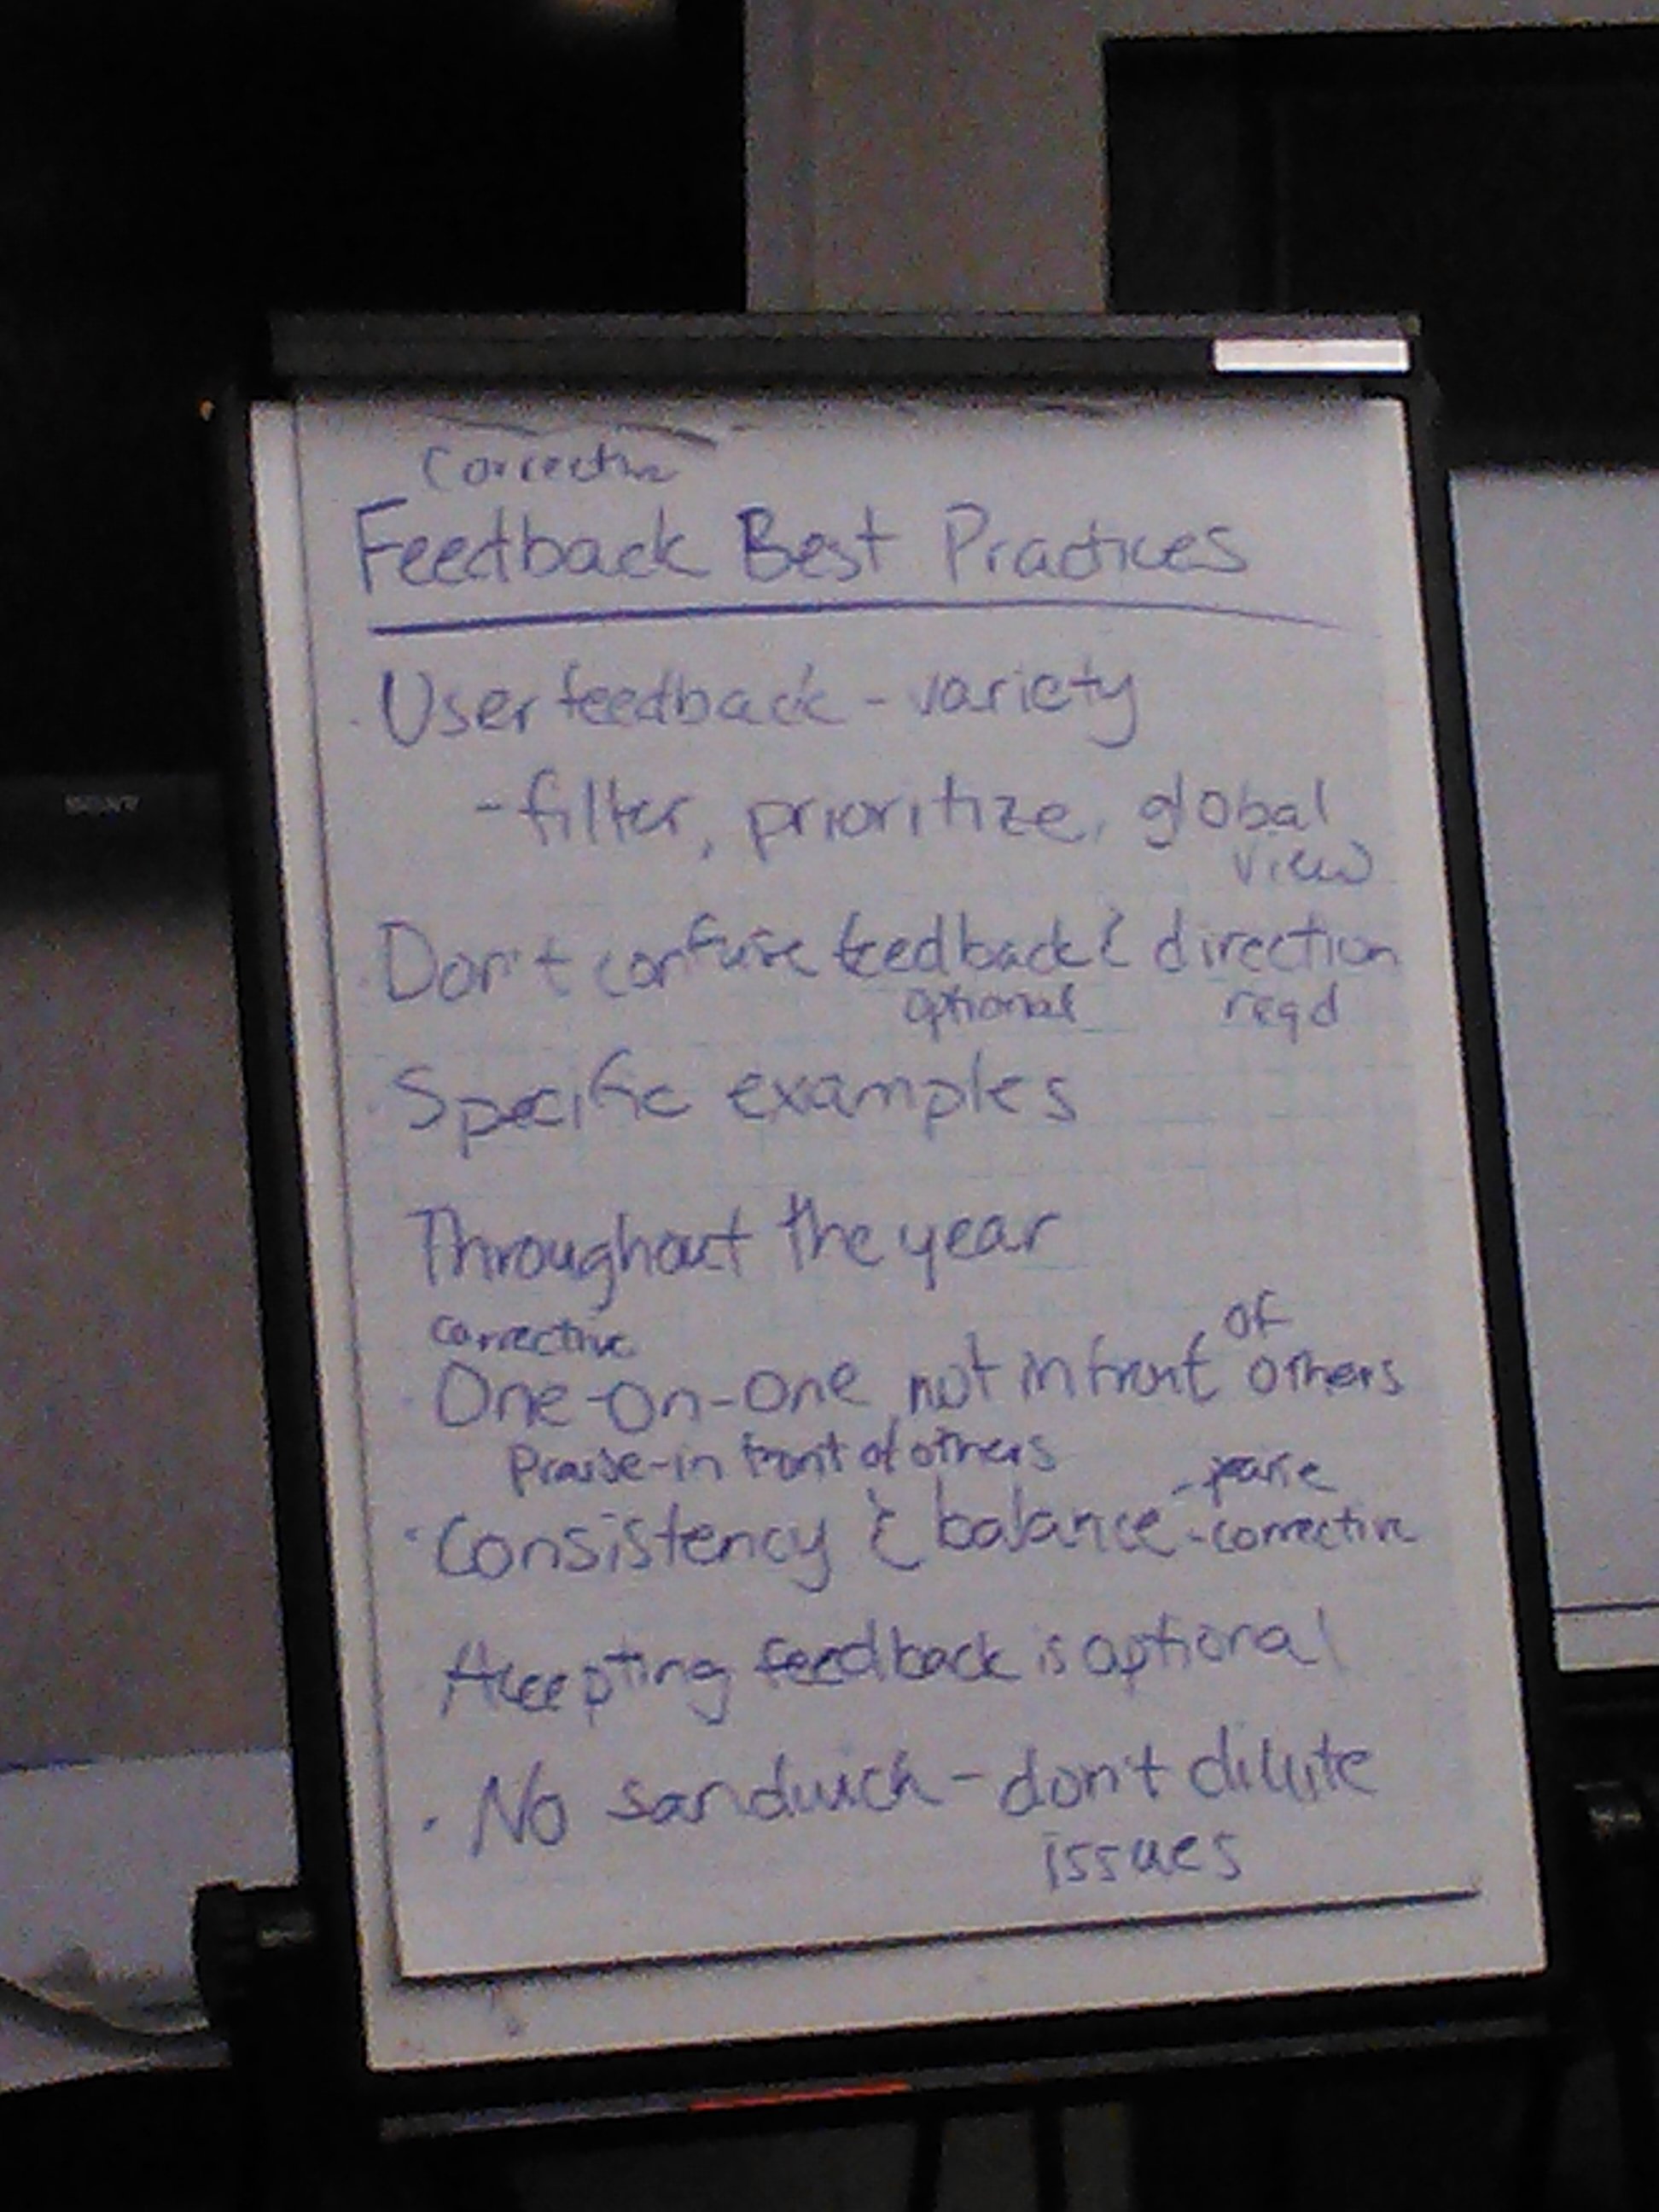 Corrective
Feedback Best Practices
· User feedback - variety
- filter, prioritize, global
view
· Don't confuse feedback & direction
optional reqd
· Specific examples
Throughout the year
corrective
· One-on-one, not in front of others
Praise-in front of others
- praise
· Consistency & balance - corrective
Accepting feedback is optional
· No sandwich - don't dilute
issues
SONY